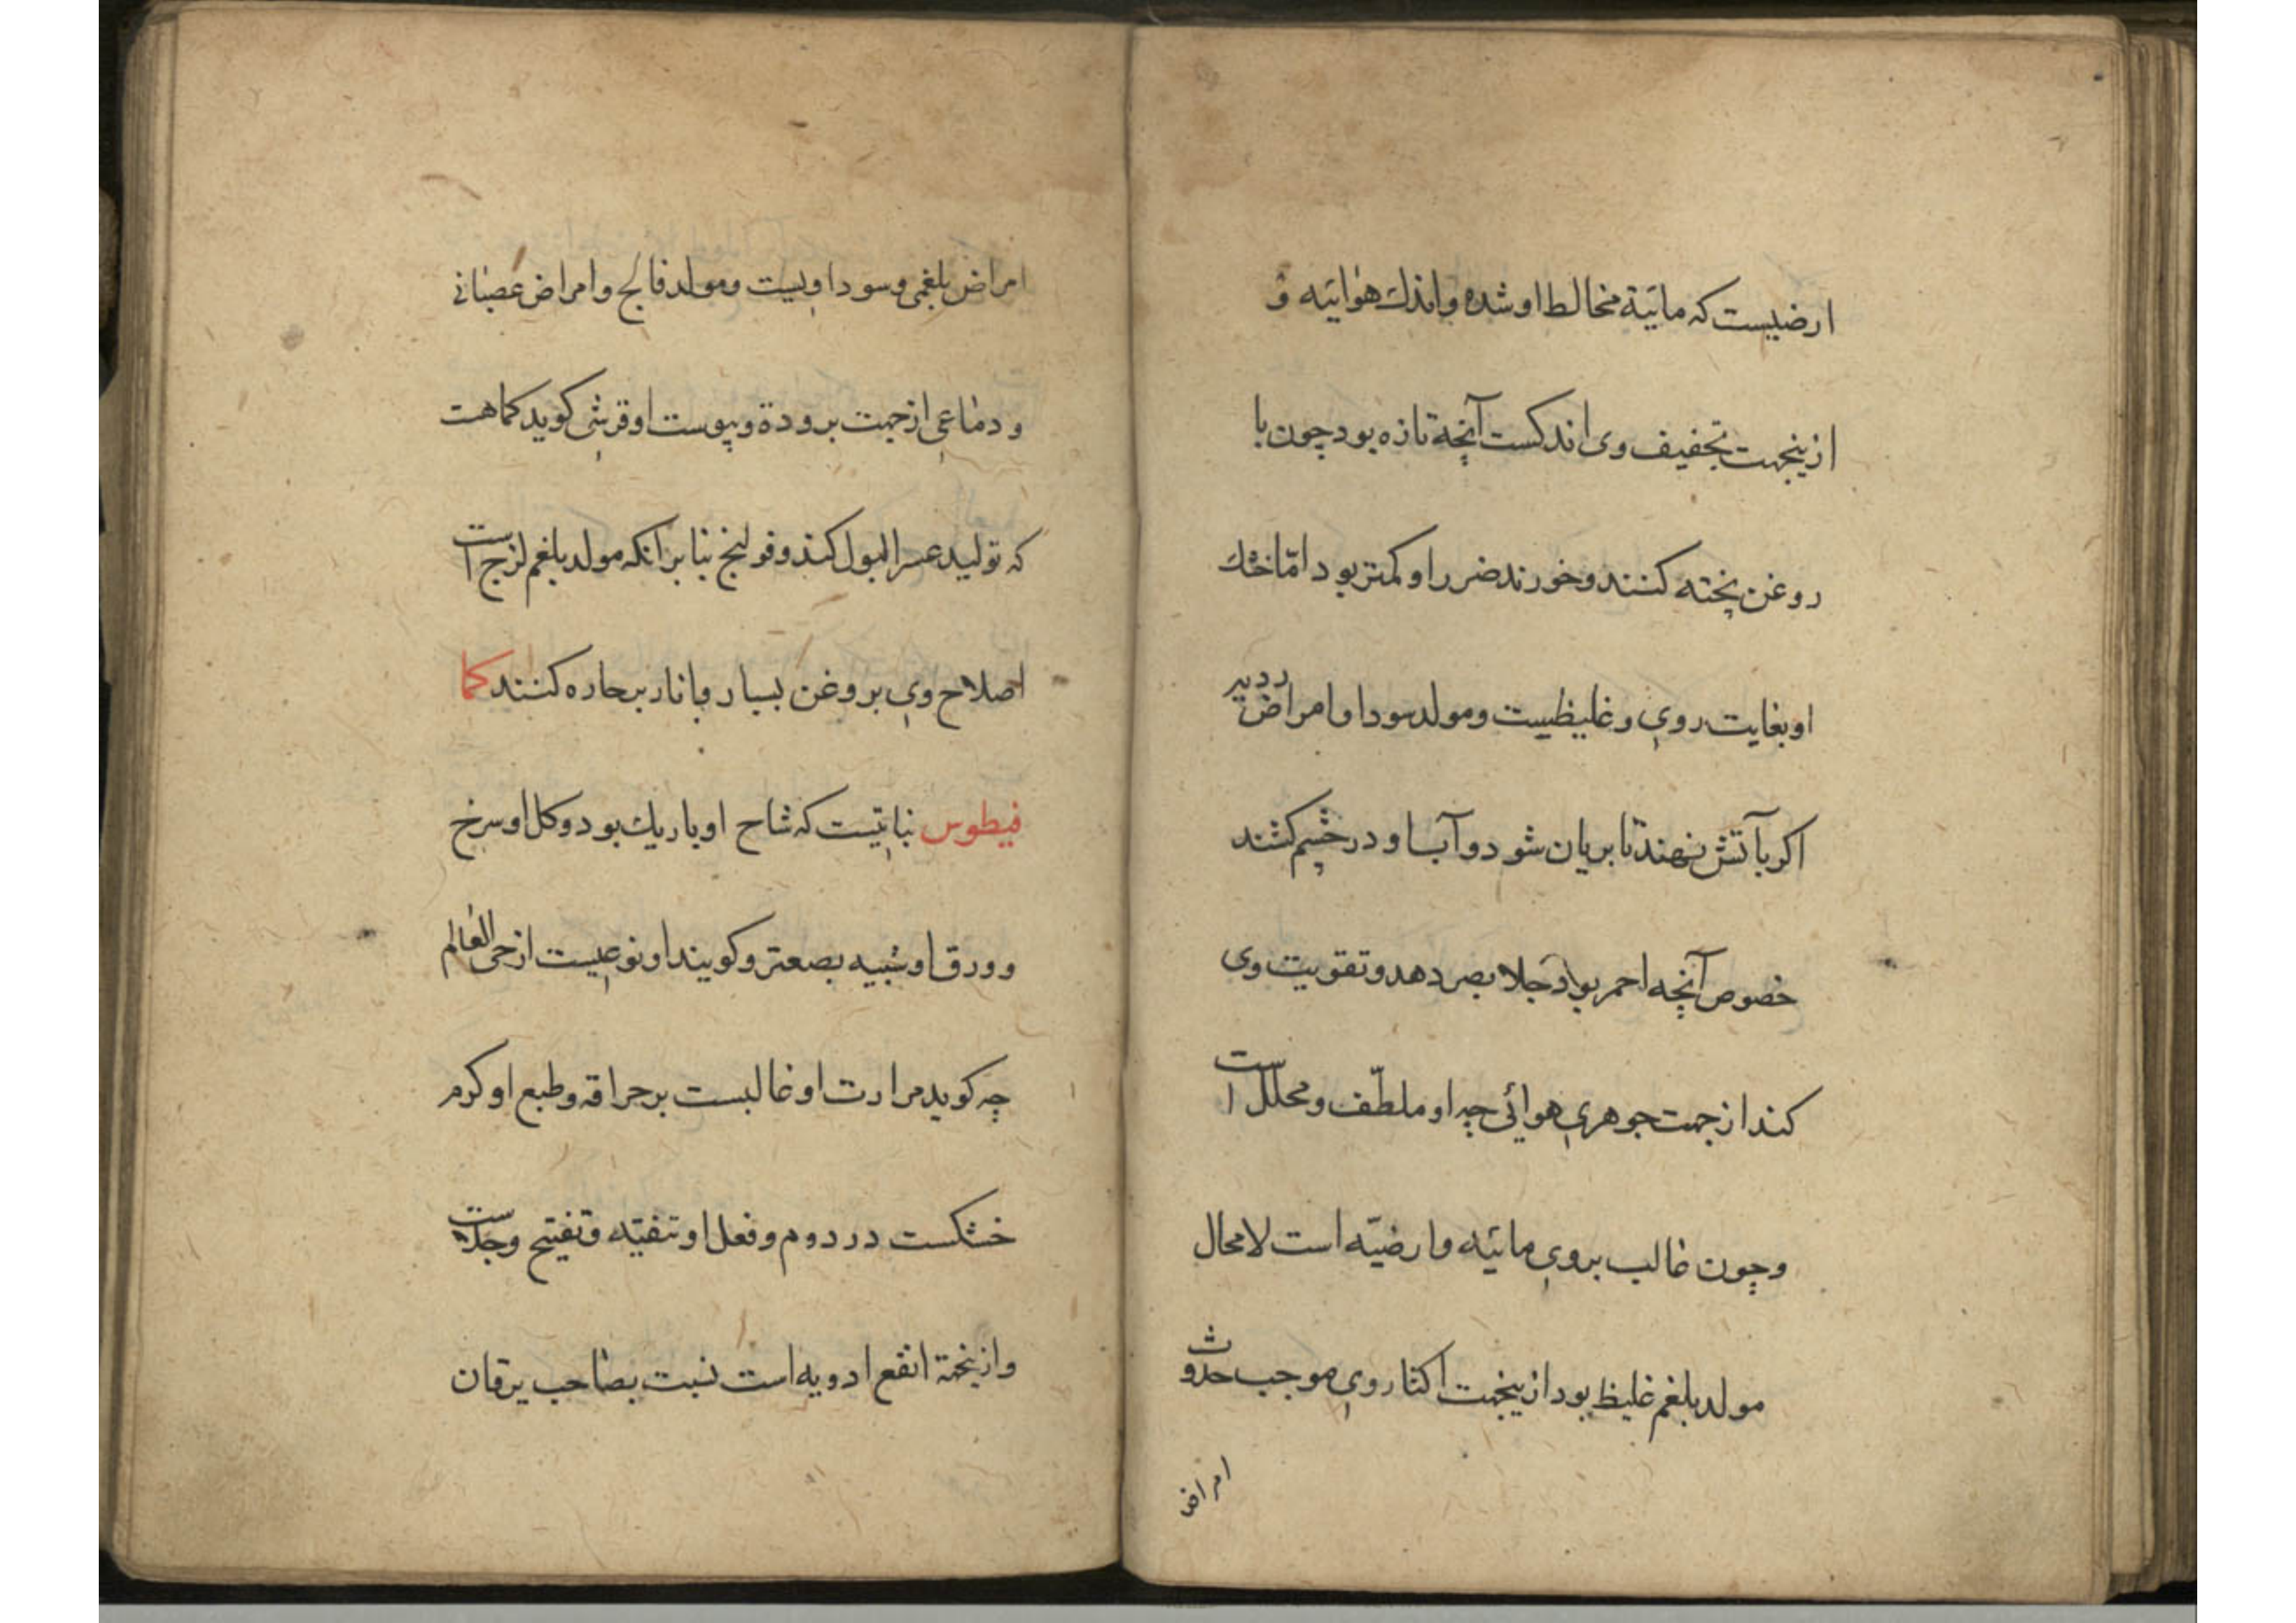 ارضیست که مائیة مخالط او شده واندك هوائیه و
ازینجهت تجفیف وی اندکست آنچه تازه بود چون با
روغن پخته کنند وخورند ضرر او کمتر بود امّا خشك
او بغایت روی وغلیظیست ومولد سودا وامراض
اکر بآتش نهند تا بریان شود وآب او در چشم کشند
خصوص آنچه احمر بود جلاء بصر دهد وتقویت وی
کند از جهت جوهری هوائی چه او ملطّف ومحلل است
وچون غالب بروی مائیّه وارضیّه است لامحال
مولد بلغم غلیظ بود ازینجهت اکثار وی موجب حدوث
امراض
امراض بلغمی وسوداویست ومولد فالج وامراض عصبانی
ودماعی از جهت برودة ویپوست او قرشی کوید کماهت
که تولید عسر البول کند وقولنج بنا بر آنکه مولد بلغم لزج است
اصلاح وی بروغن بسیار وبانار بر حاره کنند کما
فیطوس نباتیست که شاخ او باریك بود وکل او سرخ
وورق او شبیه بصعتر وکویند او نوعیست از حی العالم
چه کوید مرارت او غالبست بر حراقه وطبع او کرم
خشکست در دوم وفعل او تنقیه وتفتیح وجلاست
وازینجهة انفع ادویه است نسبت بصاحب یرقان